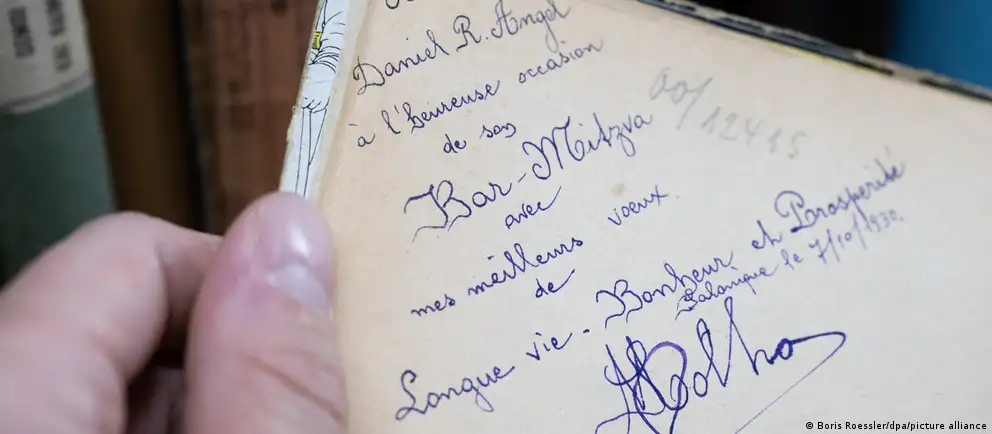 Daniel R. Angel
à l'heureuse occasion
de son
Bar-Mitzva
avec
mes meilleurs voeux.
de
Longue vie - Bonheur et Prosperité
Salonique le 7/10/1930.
00/12415
© Boris Roessler/dpa/picture alliance